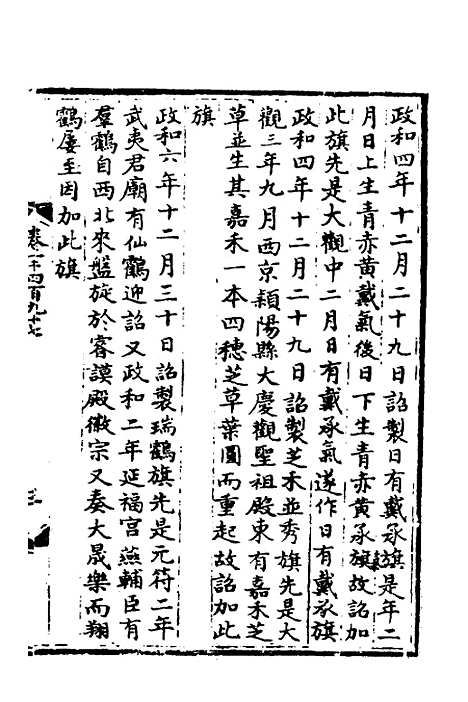 政和四年十二月二十九日詔製日有戴承旗是年二
月日上生青赤黄戴氣後日下生青赤黄承氣故詔加
此旗先是大觀中二月日有戴承氣遂作日有戴承旗
政和四年十二月二十九日詔製芝禾並秀旗先是大
觀三年九月西京潁陽縣大慶觀聖祖殿東有嘉禾芝
草並生其嘉禾一本四穗芝草葉圓而重起故詔加此
旗
政和六年十二月三十日詔製瑞鶴旗先是元符二年
武夷君廟有仙鶴迎詔又政和二年延福宮燕輔臣有
羣鶴自西北來盤旋於睿謨殿徽宗又奏大晟樂而翔
鶴屢至因加此旗